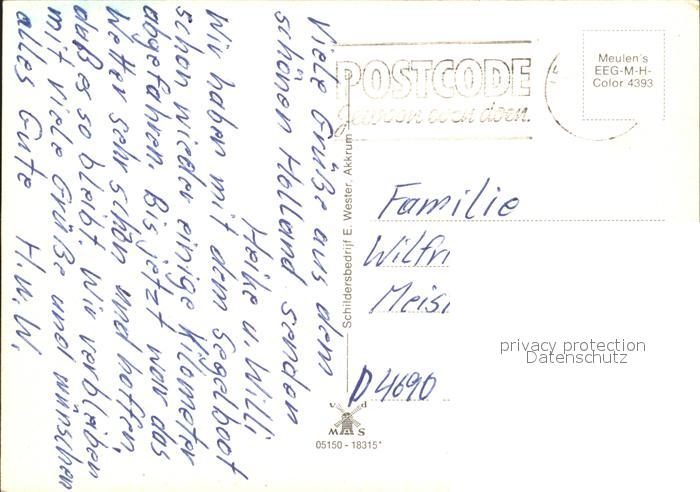 Viele Grüße aus dem
schönen Holland senden
Heike u. Willi
Wir haben mit dem Segelboot
schon wieder einige Kilometer
abgefahren. Bis jetzt war das
Wetter sehr schön und hoffen,
daß es so bleibt. Wir verbleiben
mit viele Grüße und wünschen
alles Gute H. u. W.
Schildersbedrijf E. Wester, Akkrum
POSTCODE
gewoon even doen.
Meulen's
EEG-M-H-
Color 4393
Familie
Wilfri
Meisi
D 4690
privacy protection
Datenschutz
V D
M S
05150 - 18315*